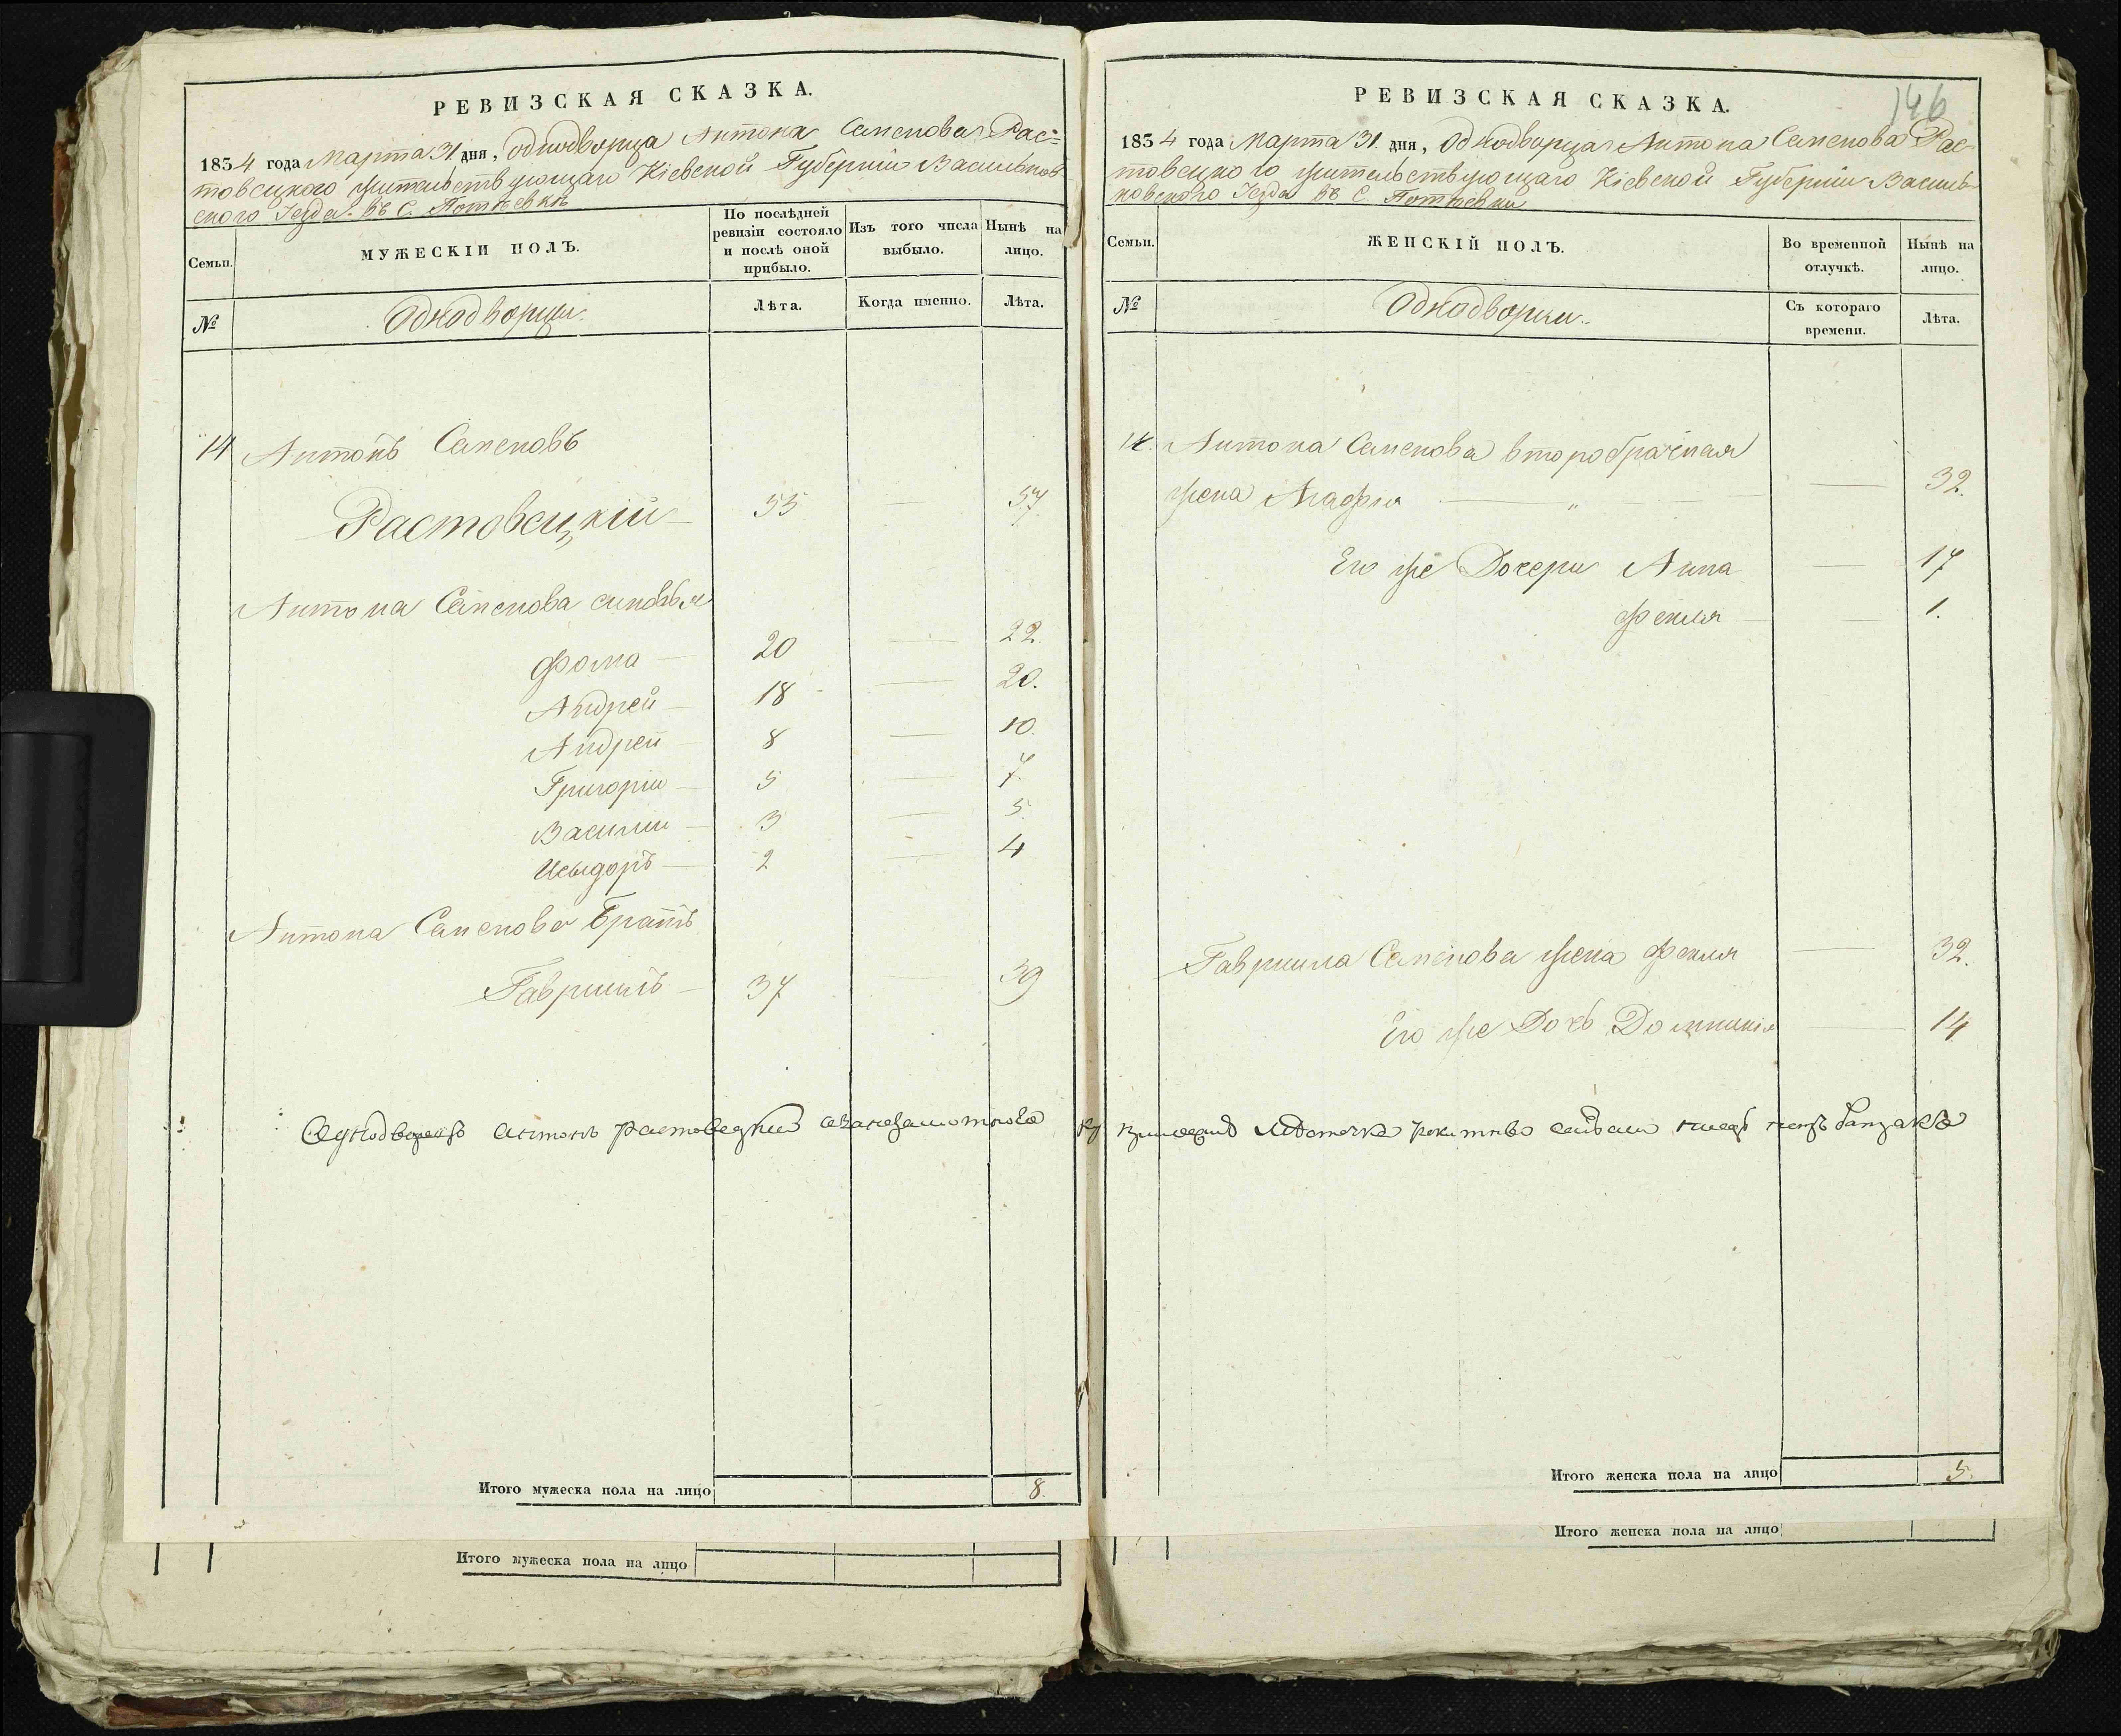 РЕВИЗСКАЯ СКАЗКА.
1834 года Марта 31 дня, однодворца Антона Семенова Рас=
товецкого жительствующаго Кіевской Губерніи Васильков
ского Уезда въ С. Потіевкѣ
Семьи.
МУЖЕСКІЙ ПОЛЪ.
По послѣдней
ревизіи состояло
и послѣ оной
прибыло.
Изъ того числа
выбыло.
Нынѣ на
лицо.
№
Однодворцы.
Лѣта.
Когда именно.
Лѣта.
14 Антонъ Семеновъ
Растовецкій 55 — 57
Антона Семенова сыновья
Фома — 20 — 22.
Андрей — 18 — 20.
Андрей — 8 — 10.
Григорій — 5 — 7.
Василий — 3 — 5.
Исыдоръ — 2 — 4
Антона Семенова Братъ
Гавриилъ — 37 — 39
Однодворецъ Антонъ Растовецкий
Итого мужеска пола на лицо 8.
Итого мужеска пола на лицо
146
РЕВИЗСКАЯ СКАЗКА.
1834 года Марта 31. дня, Однодворца Антона Семенова Рас
товецкого жительствующаго Кіевской Губерніи Василь
ковского Уезда въ С. Потіевки
Семьи.
ЖЕНСКІЙ ПОЛЪ.
Во временной
отлучкѣ.
Нынѣ на
лицо.
№
Однодворки.
Съ котораго
времени.
Лѣта.
14. Антона Семенова второбрачная
жена Агафия — " — — 32.
Его же Дочери Анна — 17
Фекля — — 1.
Гавриила Семенова жена Фекля — 32.
Его же Дочь Домникія — 14
Итого женска пола на лицо 5.
Итого женска пола на лицо